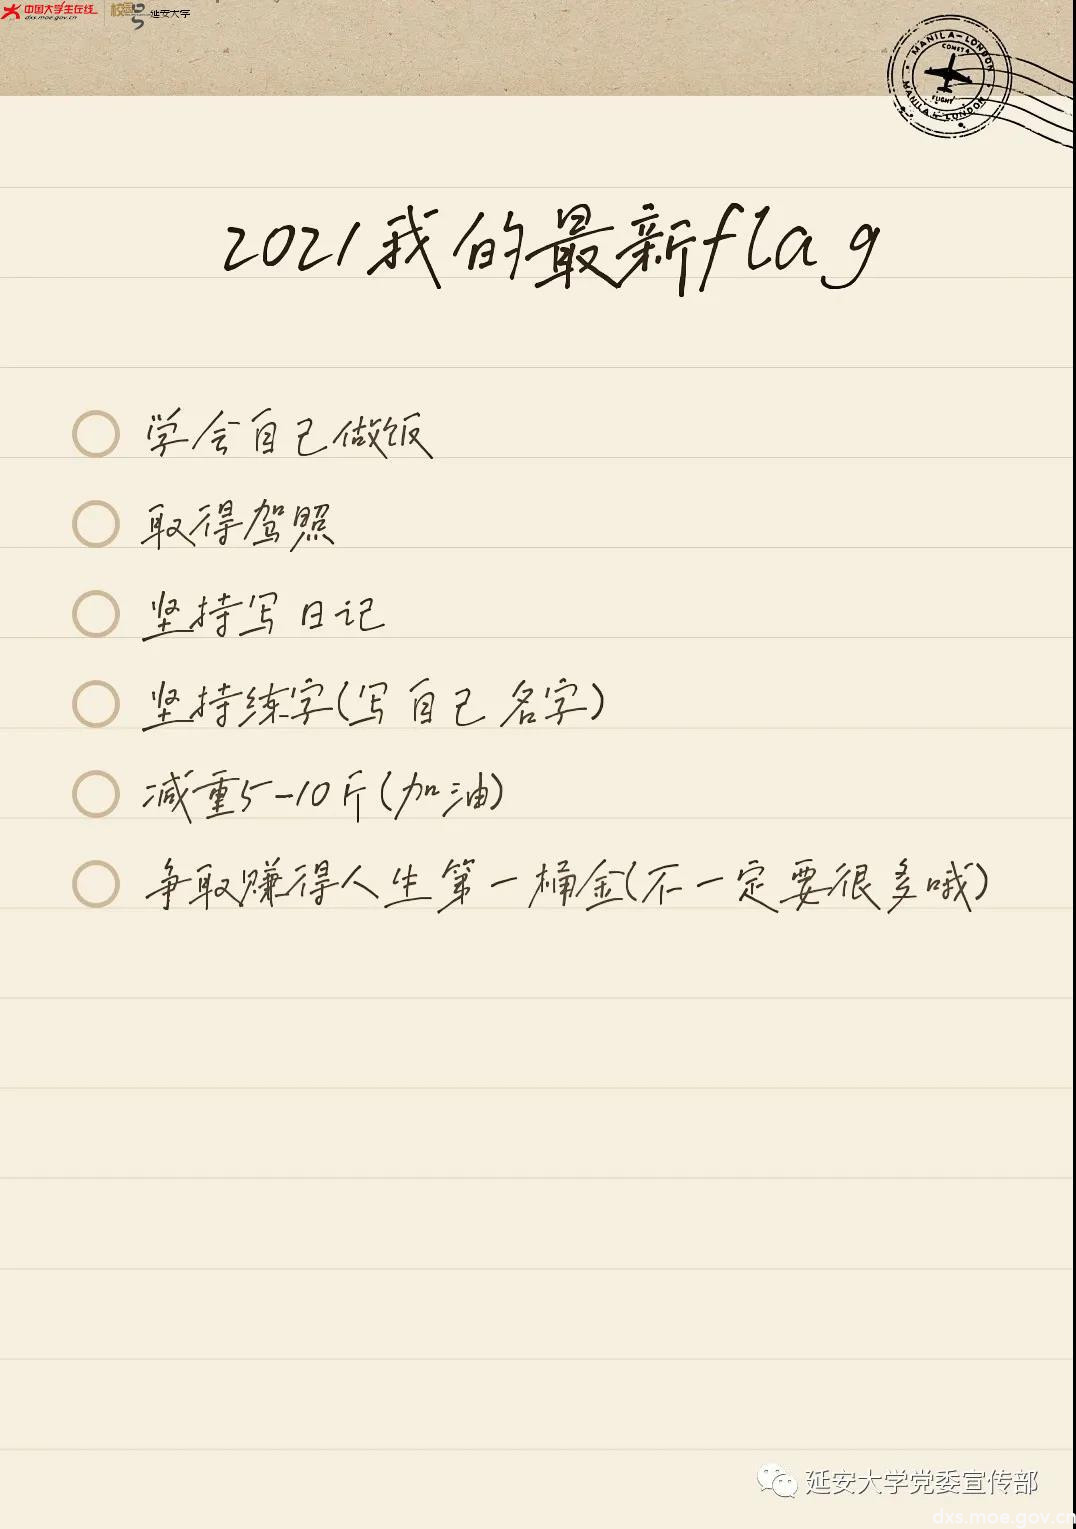 中国大学生在线 校园号 延安大学
dxs.moe.gov.cn
MANILA-LONDON
COMETA
FLIGHT
MANILA-LONDON
2021我的最新flag
学会自己做饭
取得驾照
坚持写日记
坚持练字(写自己名字)
减重5-10斤(加油)
争取赚得人生第一桶金(不一定要很多哦)
延安大学党委宣传部
dxs.moe.gov.cn